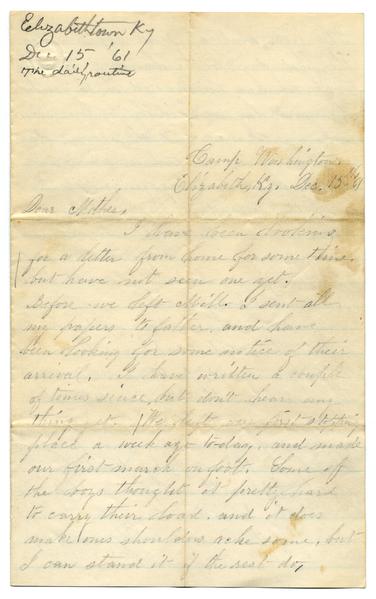 Elizabethtown Ky
Dec 15 '61
The daily routine
Camp Washington
Elizabeth, Ky. Dec. 15th/61
Dear Mother,
I have been looking
for a letter from home for some time
but have not seen one yet.
Before we left Mill. I sent all
my papers to father, and have
been looking for some notice of their
arrival. I have written a couple
of times since, but don't hear any
thing yet. We left our first stopping
place a week ago to-day, and made
our first march on foot. Some of
the boys thought it pretty hard
to carry their load, and it does
make ones shoulders ache some, but
I can stand it if the rest do,